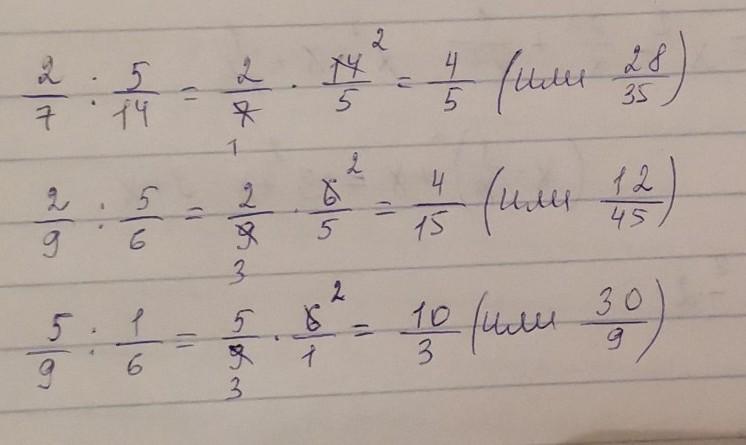 2/7 : 5/14 = 2/7 1 · 14/5 2 = 4/5 (или 28/35)
2/9 : 5/6 = 2/9 3 · 6/5 2 = 4/15 (или 12/45)
5/9 : 1/6 = 5/9 3 · 6/1 2 = 10/3 (или 30/9)